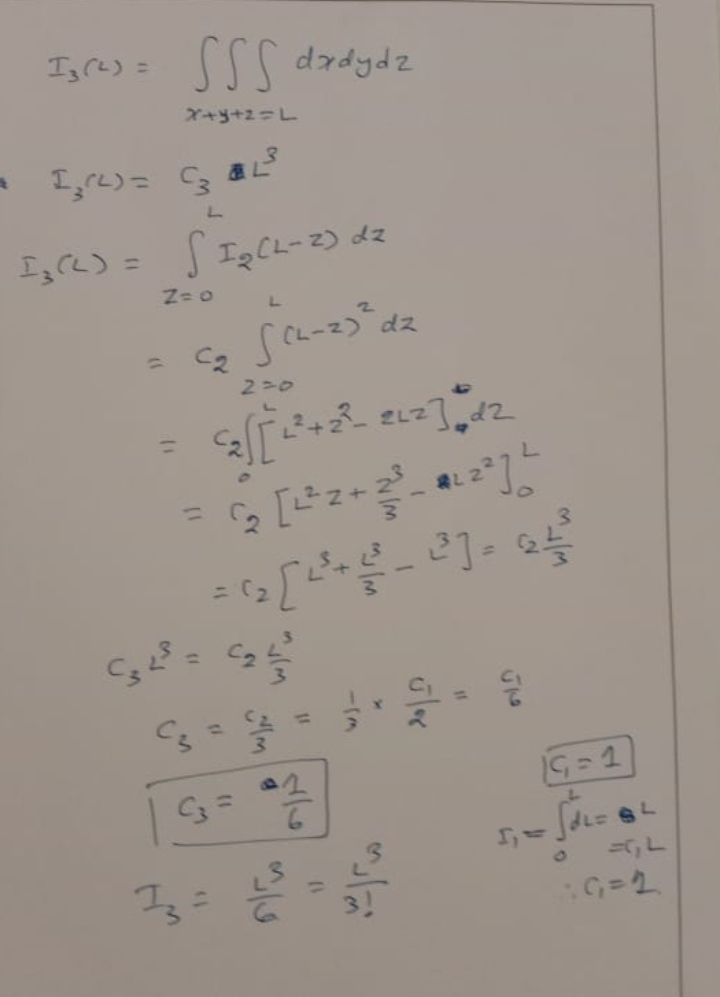 I₃(L) = ∫∫∫ dxdydz
x+y+z=L
I₃(L) = C₃ L³
I₃(L) = ∫_{z=0}^{L} I₂(L-z) dz
= C₂ ∫_{z=0}^{L} (L-z)² dz
= C₂ ∫_0^L [L²+z²-2Lz] dz
= C₂ [L²z + z³/3 - Lz²]_0^L
= C₂ [L³ + L³/3 - L³] = C₂ L³/3
C₃ L³ = C₂ L³/3
C₃ = C₂/3 = 1/3 × C₁/2 = C₁/6
C₃ = 1/6
I₃ = L³/6 = L³/3!
C₁ = 1
I₁ = ∫_0^L dL = L
= C₁ L
∴ C₁ = 1